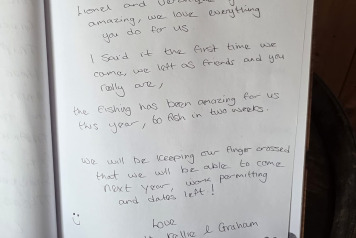 Lionel and
amazing, we love everything
you do for us
I said it the first time we
came, we left as friends and you
really are,
the fishing has been amazing for us
this year, 60 fish in two weeks.
we will be keeping our finger crossed
that we will be able to come
next year, work permitting
and dates left!
:)
Love
Kellie & Graham